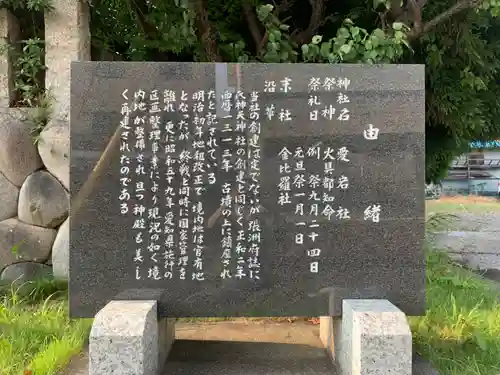 由緒
神社名 愛宕社
祭神 火具部知命
祭礼日 例祭九月二十四日
元旦祭一月一日
末社 金比羅社
沿革
当社の創建は定でないが張洲府志
神天神社の創建と同じく正和二年
西暦一三一三年 古墳の上に鎮座され
明治初年地租改正で境内地は官有地
となったが終戦と同時に国家管理を
離れ更に昭和五十九年愛知県施行の
区画整理事業により現況の如く境
内地が整備され且つ神殿も美し
く再建されたのである